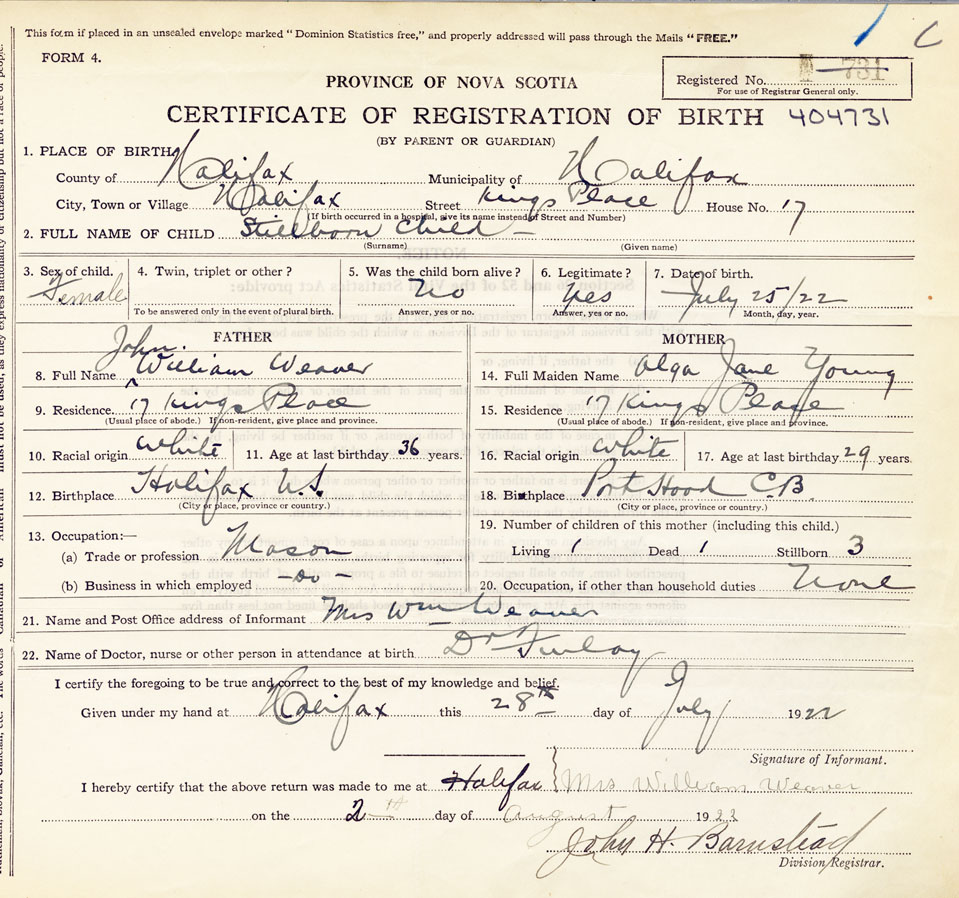 This form if placed in an unsealed envelope marked "Dominion Statistics free," and properly addressed will pass through the Mails "FREE."
FORM 4.
Registered No. 731
For use of Registrar General only.
PROVINCE OF NOVA SCOTIA
CERTIFICATE OF REGISTRATION OF BIRTH 404731
(BY PARENT OR GUARDIAN)
1. PLACE OF BIRTH
County of Halifax Municipality of Halifax
City, Town or Village Halifax Street Kings Place House No. 17
(If birth occurred in a hospital, give its name instead of Street and Number)
2. FULL NAME OF CHILD Stillborn Child
(Surname) (Given name)
3. Sex of child. 4. Twin, triplet or other? 5. Was the child born alive? 6. Legitimate? 7. Date of birth.
Female No Yes July 25/22
To be answered only in the event of plural birth. Answer, yes or no. Answer, yes or no. Month, day, year.
FATHER MOTHER
8. Full Name John William Weaver 14. Full Maiden Name Olga Jane Young
9. Residence. 17 Kings Place 15. Residence 17 Kings Place
(Usual place of abode.) If non-resident, give place and province. (Usual place of abode.) If non-resident, give place and province.
10. Racial origin White 11. Age at last birthday 36 years. 16. Racial origin White 17. Age at last birthday 29 years.
12. Birthplace Halifax N.S. 18. Birthplace Port Hood C.B.
(City or place, province or country.) (City or place, province or country.)
13. Occupation:— 19. Number of children of this mother (including this child.)
(a) Trade or profession Mason Living 1 Dead 1 Stillborn 3
(b) Business in which employed -do- 20. Occupation, if other than household duties None
21. Name and Post Office address of Informant Mrs Wm Weaver
22. Name of Doctor, nurse or other person in attendance at birth Dr Finlay
I certify the foregoing to be true and correct to the best of my knowledge and belief.
Given under my hand at Halifax this 28th day of July 1922
Signature of Informant.
I hereby certify that the above return was made to me at Halifax Mrs William Weaver
on the 2th day of August 1922
John H. Barnstead
Division Registrar.